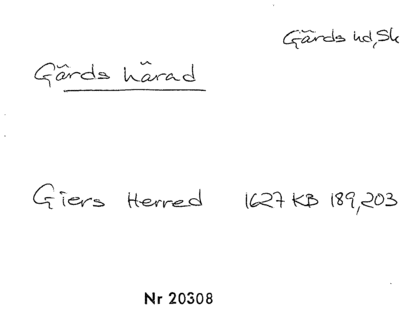 Gärds hd, Sk
Gärds härad
Giers Herred 1627 KB 189,203
Nr 20308